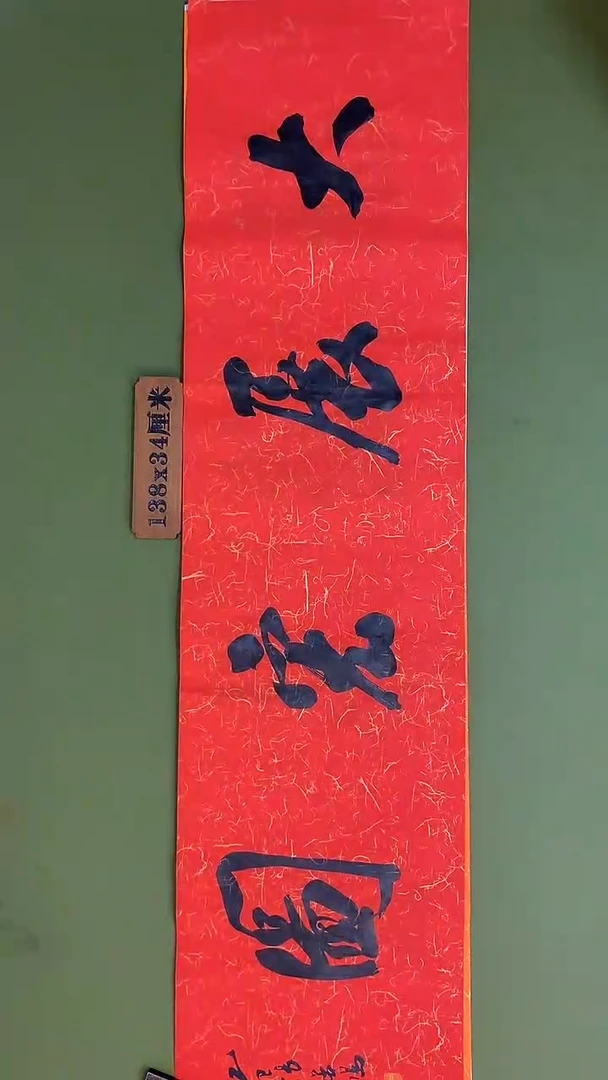 大展宏圖
138x34厘米